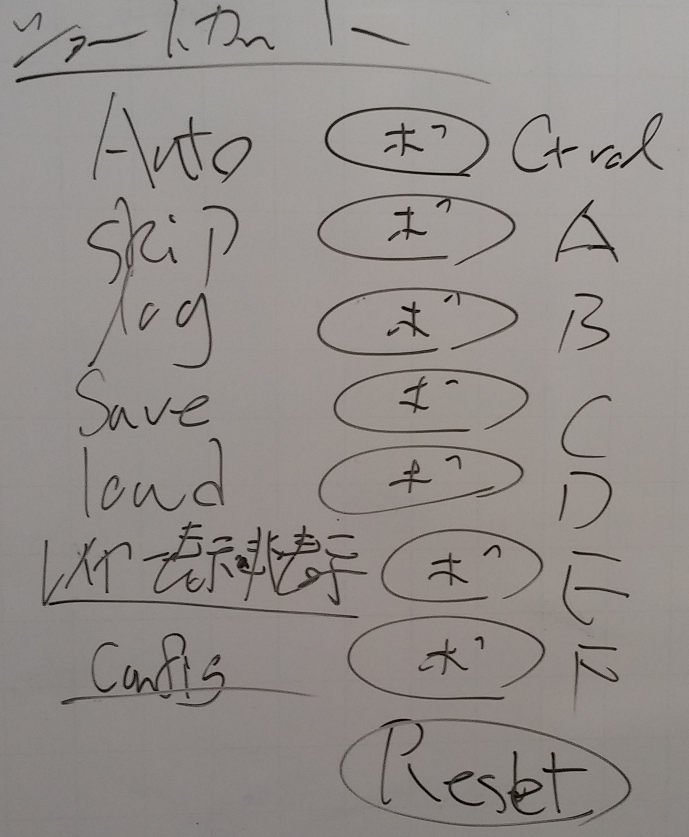 ショートカットキー
Auto ボ Ctrol
Skip ボ A
log ボ B
Save ボ C
load ボ D
表示非表示 ボ E
Config ボ F
Reset